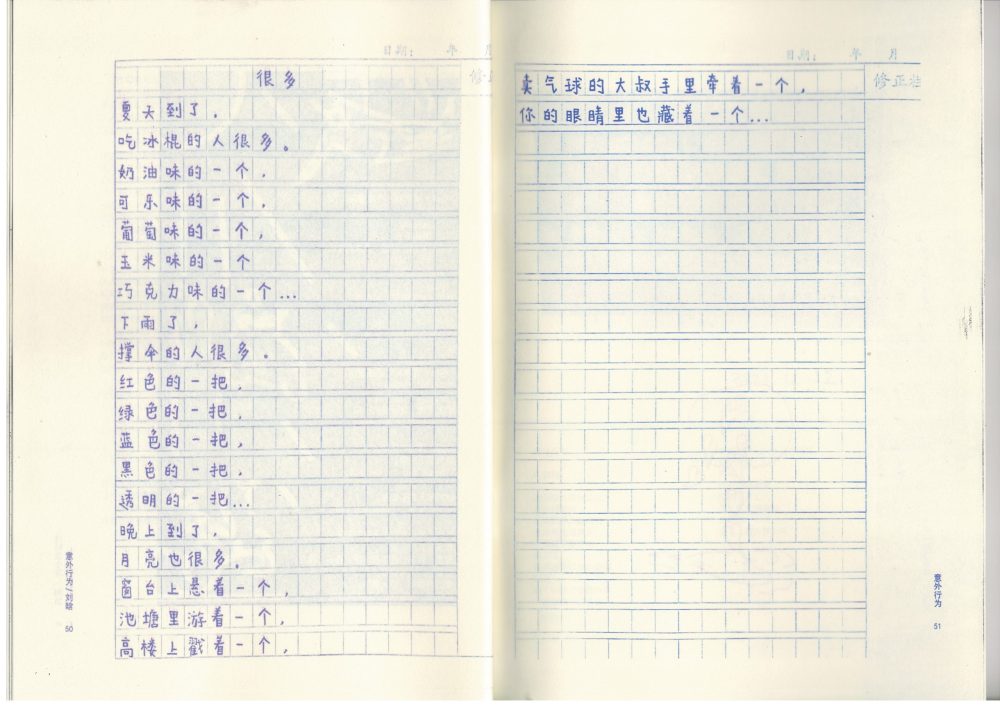 日期： 年 月
修正
很多
夏天到了，
吃冰棍的人很多。
奶油味的一个，
可乐味的一个，
葡萄味的一个，
玉米味的一个
巧克力味的一个…
下雨了，
撑伞的人很多。
红色的一把，
绿色的一把，
蓝色的一把，
黑色的一把，
透明的一把…
晚上到了，
月亮也很多。
窗台上悬着一个，
池塘里游着一个，
高楼上戳着一个，
意外行为/刘晗
50
日期： 年 月
修正栏
卖气球的大叔手里牵着一个，
你的眼睛里也藏着一个…
意外行为
51